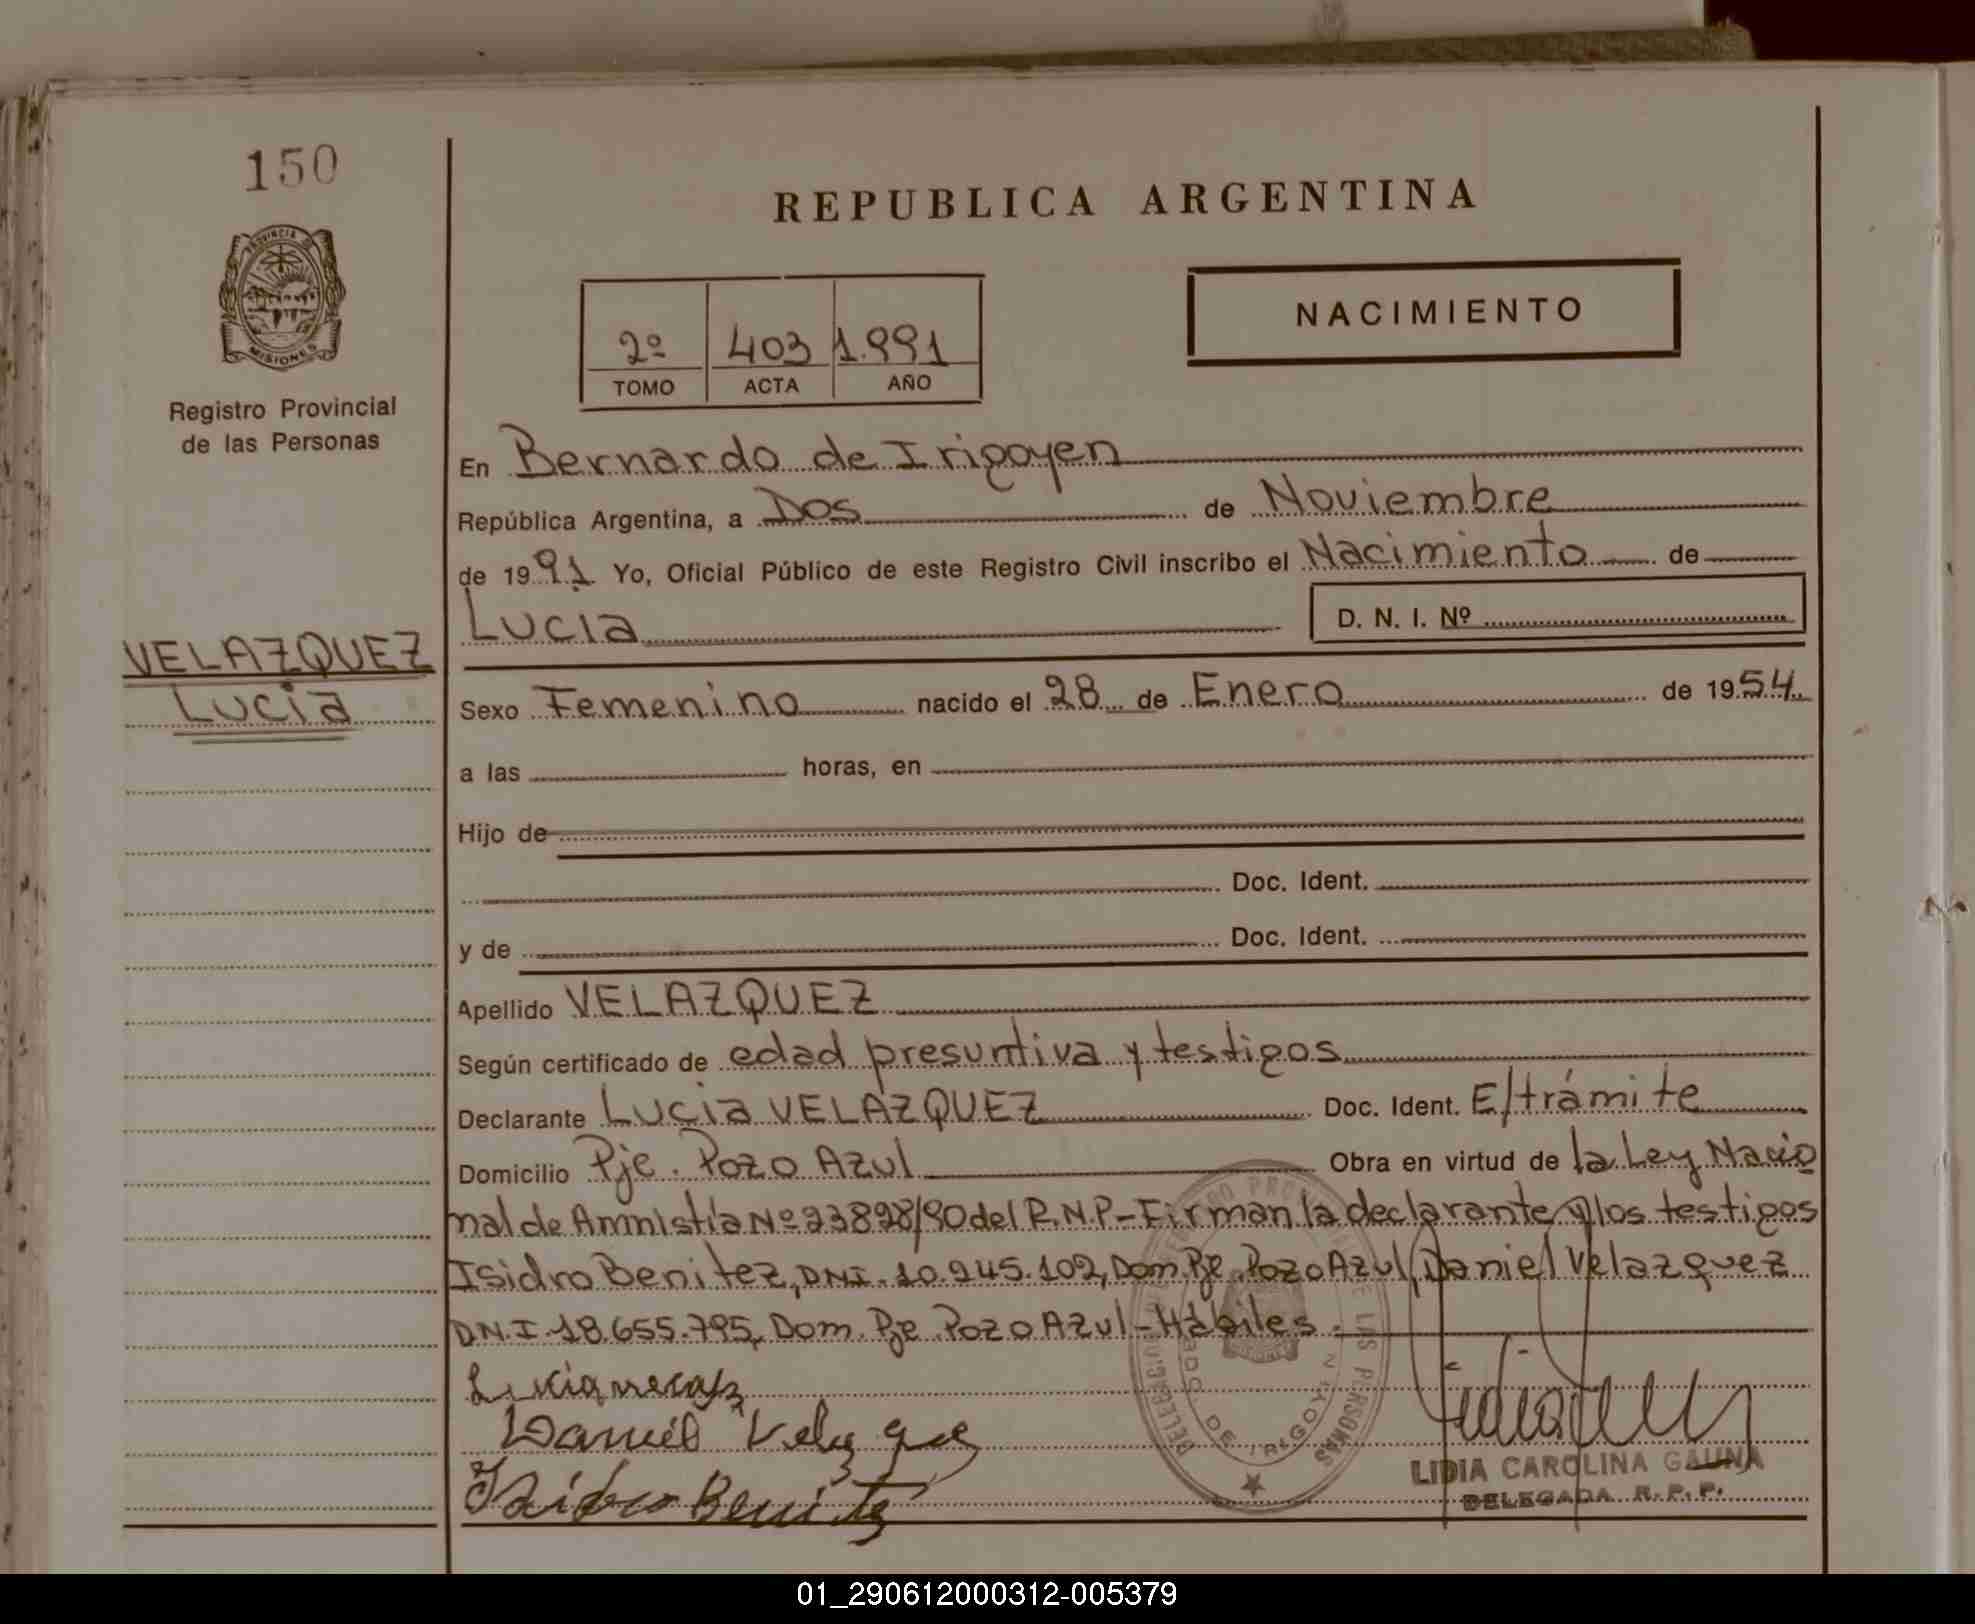 150
REPUBLICA ARGENTINA
PROVINCIA DE
MISIONES
Registro Provincial
de las Personas
2º 403 1.991
TOMO ACTA AÑO
NACIMIENTO
En Bernardo de Irigoyen
República Argentina, a Dos de Noviembre
de 1991 Yo, Oficial Público de este Registro Civil inscribo el Nacimiento de
Lucia D. N. I. Nº
VELAZQUEZ
Lucia
Sexo Femenino nacido el 28 de Enero de 1954
a las horas, en
Hijo de
Doc. Ident.
y de Doc. Ident.
Apellido VELAZQUEZ
Según certificado de edad presuntiva y testigos
Declarante Lucia VELAZQUEZ Doc. Ident. E/trámite
Domicilio Pje. Pozo Azul Obra en virtud de la Ley Nacio
nal de Amnistía Nº 23828/90 del R.N.P - Firman la declarante y los testigos
Isidro Benitez, DNI. 10.245.102, Dom. Pje. Pozo Azul, Daniel Velazquez
DN.I. 18.655.795, Dom. Pje Pozo Azul - Hábiles.
Daniel Velazquez
Isidro Benitez
DE IRIGOYEN
LAS PERSONAS
LIDIA CAROLINA GAUNA
DELEGADA R. P. P.
01_290612000312-005379